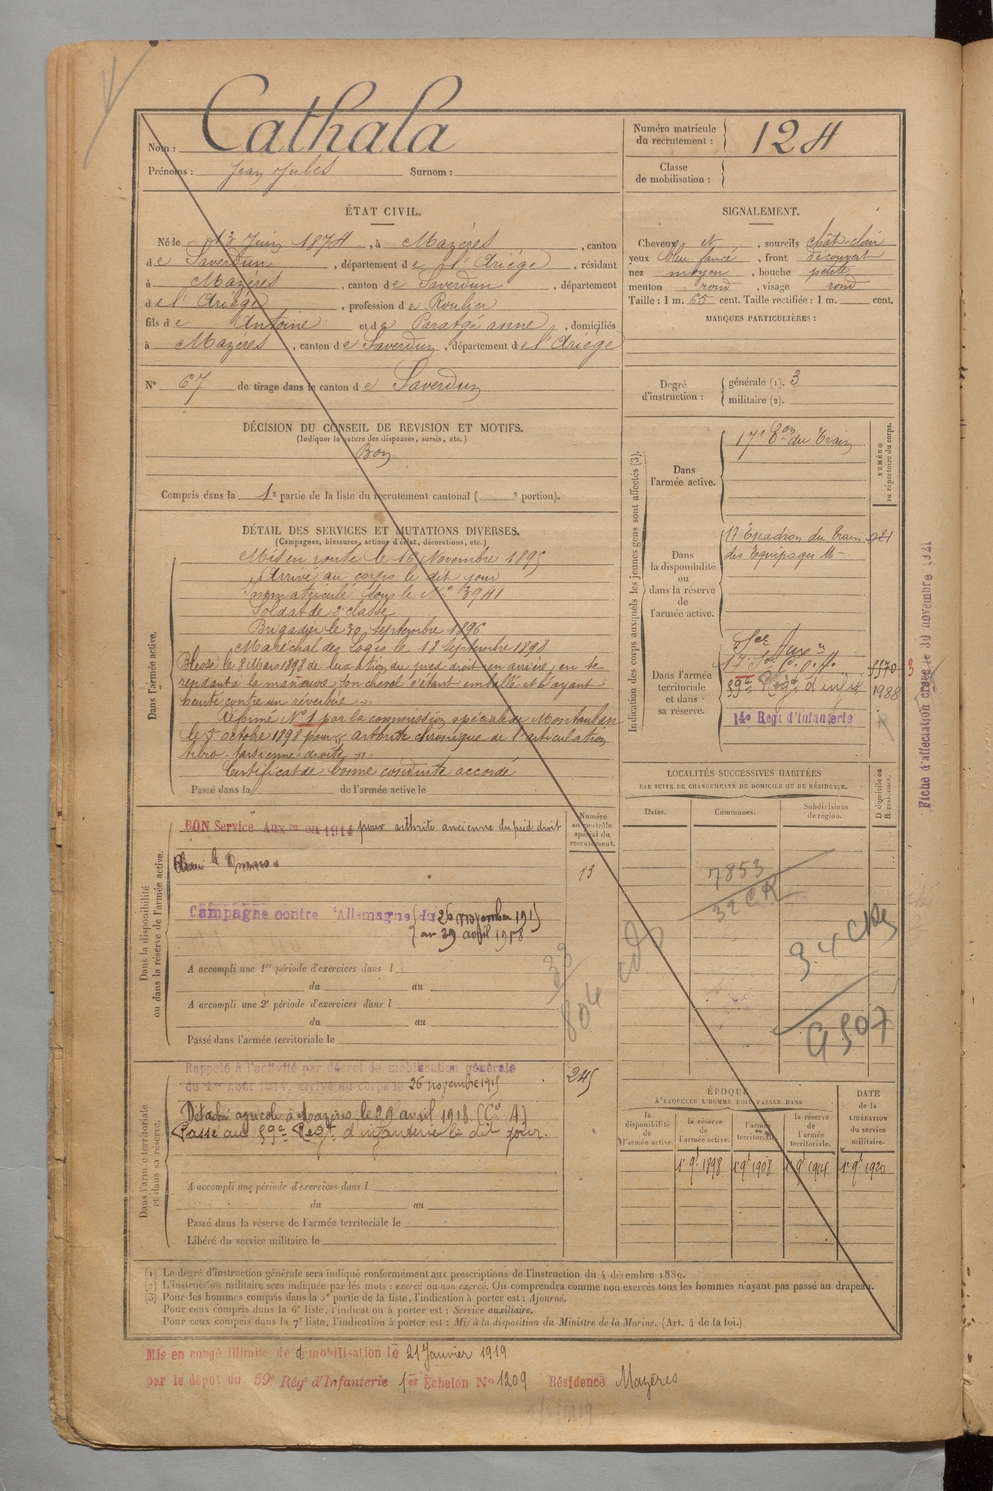 Cathala
Nom :
Prénoms : Jean Jules Surnom :
Numéro matricule du recrutement : 124
Classe de mobilisation :
ÉTAT CIVIL.
Né le 13 Juin 1874, à Mazères, canton
de Saverdun, département de l'Ariège, résidant
à Mazères, canton de Saverdun, département
de l'Ariège, profession de Roulier
fils de Antoine et de anne, domiciliés
à Mazères, canton de Saverdun, département de l'Ariège
N° 67 de tirage dans le canton de Saverdun
SIGNALEMENT.
Cheveux et , sourcils chât-clair
yeux bleu foncé, front découvert
nez moyen, bouche petite
menton rond, visage rond
Taille : 1 m. 65 cent. Taille rectifiée : 1 m. cent.
MARQUES PARTICULIÈRES :
Degré d'instruction : générale (1). 3
militaire (2).
DÉCISION DU CONSEIL DE REVISION ET MOTIFS.
(Indiquer la nature des dispenses, sursis, etc.)
Bon
Compris dans la 1e partie de la liste du recrutement cantonal ( e portion).
DÉTAIL DES SERVICES ET MUTATIONS DIVERSES.
(Campagnes, blessures, actions d'éclat, décorations, etc.)
Dans l'armée active.
Mis en route le 16 Novembre 1895
Arrivé au corps le dit jour
Immatriculé sous le N° 3941
Soldat de 2e classe
Brigadier le 30 Septembre 1896
Maréchal des Logis le 18 Septembre 1898
Blessé le 8 Mars 1898 de luxation du pied droit en arrière, en se
rendant à la manœuvre, son cheval s'étant emballé et l'ayant
heurté contre un réverbère
Réformé N° 1 par la commission spéciale de Montauban
le 5 octobre 1898 pour arthrite chronique de l'articulation
tibio-tarsienne droite
Certificat de bonne conduite accordé
Passé dans la de l'armée active le
Indication des corps auxquels les jeunes gens sont affectés (3).
NUMÉRO au répertoire du corps.
Dans l'armée active.
17e Eon du Train
Dans la disponibilité ou dans la réserve de l'armée active.
17 Escadron du Train 021
des Équipages Mre
Dans l'armée territoriale et dans sa réserve.
Sce Auxre
17 Son C. O. A. 5570
59e Regt d'infie 1988
14e Regt d'Infanterie
R
Fiche d'affectation créée le 30 novembre 1921
LOCALITÉS SUCCESSIVES HABITÉES
PAR SUITE DE CHANGEMENTS DE DOMICILE OU DE RÉSIDENCE.
Dates. Communes. Subdivisions de région. D domicile ou R résidence.
7853
32 CR
9507
Dans la disponibilité ou dans la réserve de l'armée active.
Numéro au contrôle spécial du recrutement.
BON Service Auxre en 1914 pour arthrite ancienne du pied droit
13
Campagne contre l'Allemagne du 26 novembre 1915
au 29 avril 1918
A accompli une 1re période d'exercices dans l
du au
A accompli une 2e période d'exercices dans l
du au
Passé dans l'armée territoriale le
Dans l'armée territoriale et dans sa réserve.
Rappelé à l'activité par décret de mobilisation générale
du 1er Août 1914, arrivé au corps le 26 novembre 1915
245
Détaché agricole à Mazères le 29 avril 1918 (Cie A)
Passé au 59e Regt d'infanterie le dit jour.
A accompli une période d'exercices dans l
du au
Passé dans la réserve de l'armée territoriale le
Libéré du service militaire le
ÉPOQUE À LAQUELLE L'HOMME DOIT PASSER DANS
la disponibilité de l'armée active. la réserve de l'armée active. l'armée territoriale. la réserve de l'armée territoriale. DATE de la LIBÉRATION du service militaire.
1er 9bre 1898 1er 9bre 1908 1er 9bre 1914 1er 9bre 1920
(1) Le degré d'instruction générale sera indiqué conformément aux prescriptions de l'instruction du 4 décembre 1889.
(2) L'instruction militaire sera indiquée par les mots : exercé ou non exercé. On comprendra comme non exercés tous les hommes n'ayant pas passé au drapeau.
(3) Pour les hommes compris dans la 5e partie de la liste, l'indication à porter est : Ajourné.
Pour ceux compris dans la 6e liste, l'indication à porter est : Service auxiliaire.
Pour ceux compris dans la 7e liste, l'indication à porter est : Mis à la disposition du Ministre de la Marine. (Art. 4 de la loi.)
Mis en congé illimité de démobilisation le 21 Janvier 1919
par le dépôt du 59e Régt d'Infanterie 1er Échelon N° 1209 Résidence Mazères